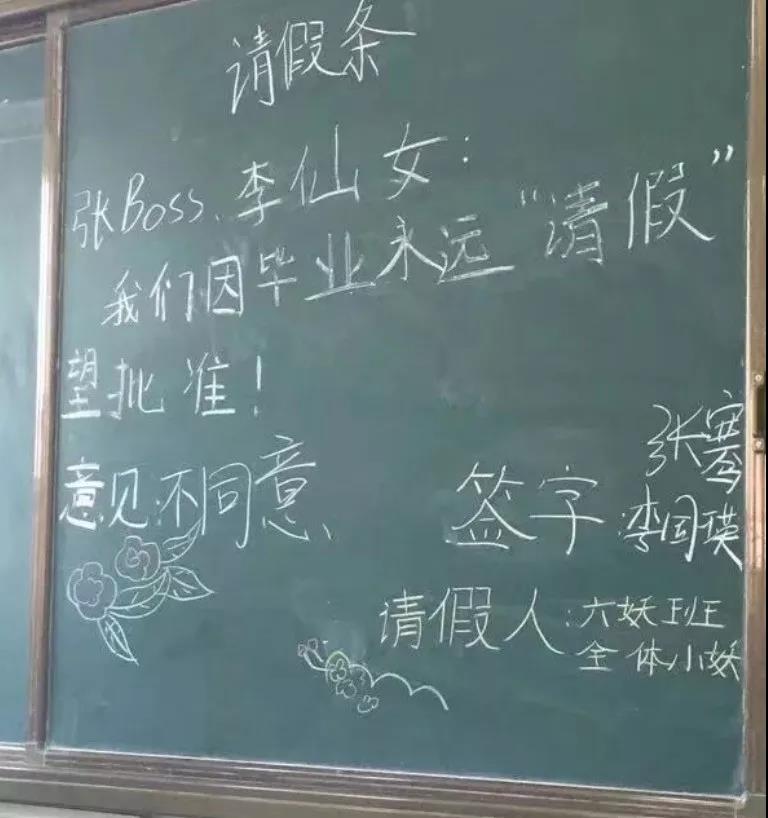 请假条
张Boss、李仙女：
我们因毕业永远“请假”
望批准！
意见：不同意、
签字：张骞
李国瑛
请假人：六妖班
全体小妖